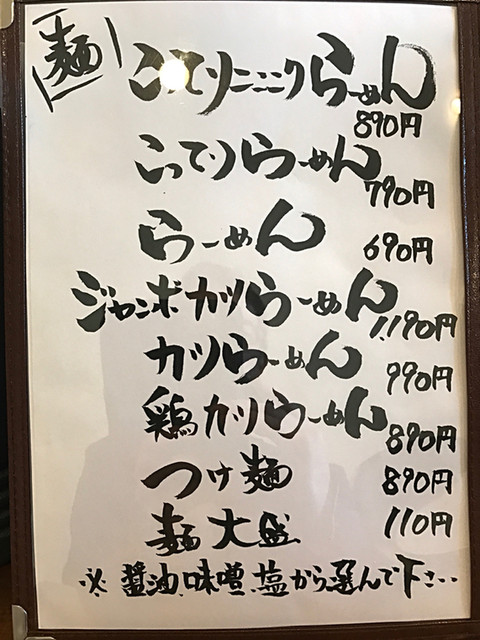 麺
こってりニンニクらーめん
890円
こってりらーめん
790円
らーめん
690円
ジャンボカツらーめん
1,190円
カツらーめん
990円
鶏カツらーめん
890円
つけ麺
890円
麺大盛
110円
※醤油、味噌、塩から選んで下さい